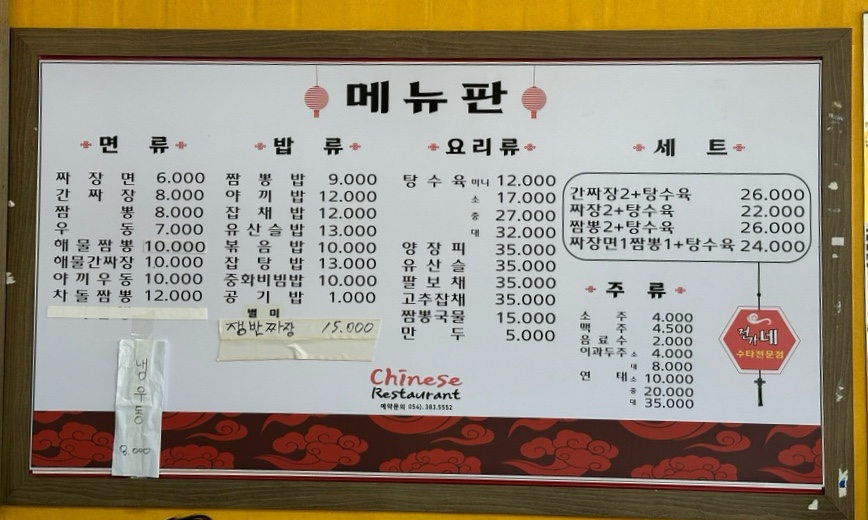 메뉴판
면 류
짜장면 6.000
간짜장 8.000
짬뽕 8.000
우동 7.000
해물짬뽕 10.000
해물간짜장 10.000
야끼우동 10.000
차돌짬뽕 12.000
냉우동
8.000
밥 류
짬뽕밥 9.000
야끼밥 12.000
잡채밥 12.000
유산슬밥 13.000
볶음밥 10.000
잡탕밥 13.000
중화비빔밥 10.000
공기밥 1.000
별미
쟁반짜장 15.000
요리류
탕수육 미니 12.000
소 17.000
중 27.000
대 32.000
양장피 35.000
유산슬 35.000
팔보채 35.000
고추잡채 35.000
짬뽕국물 15.000
만두 5.000
Chinese
Restaurant
예약문의 054).383.5552
세 트
간짜장2+탕수육 26.000
짜장2+탕수육 22.000
짬뽕2+탕수육 26.000
짜장면1짬뽕1+탕수육 24.000
주 류
소주 4.000
맥주 4.500
음료수 2.000
이과두주 소 4.000
대 8.000
연태 소 10.000
중 20.000
대 35.000
전가네
수타전문점